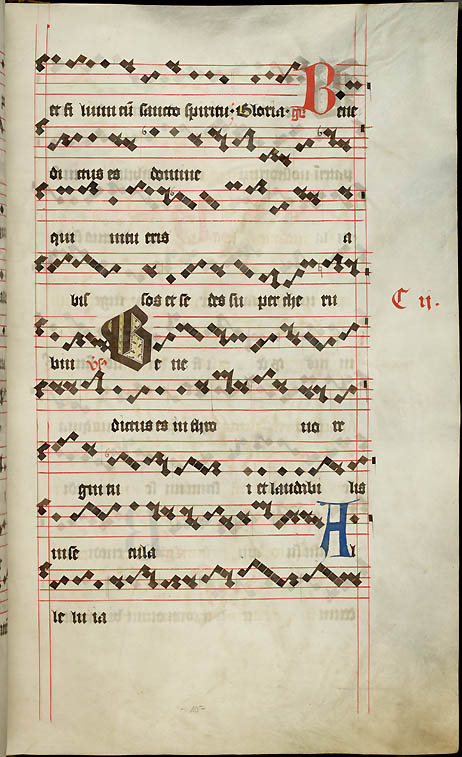 et fi lium cū sancto spiritu · Gloria · gr̄ Bene
di ctus es domine
qui intu eris a
bis sos et se des su per che ru
C ii.
bim V̄s Be ne
dictus es in thro no re
gni tu i et laudabi lis
in se cula Al
le lu ia